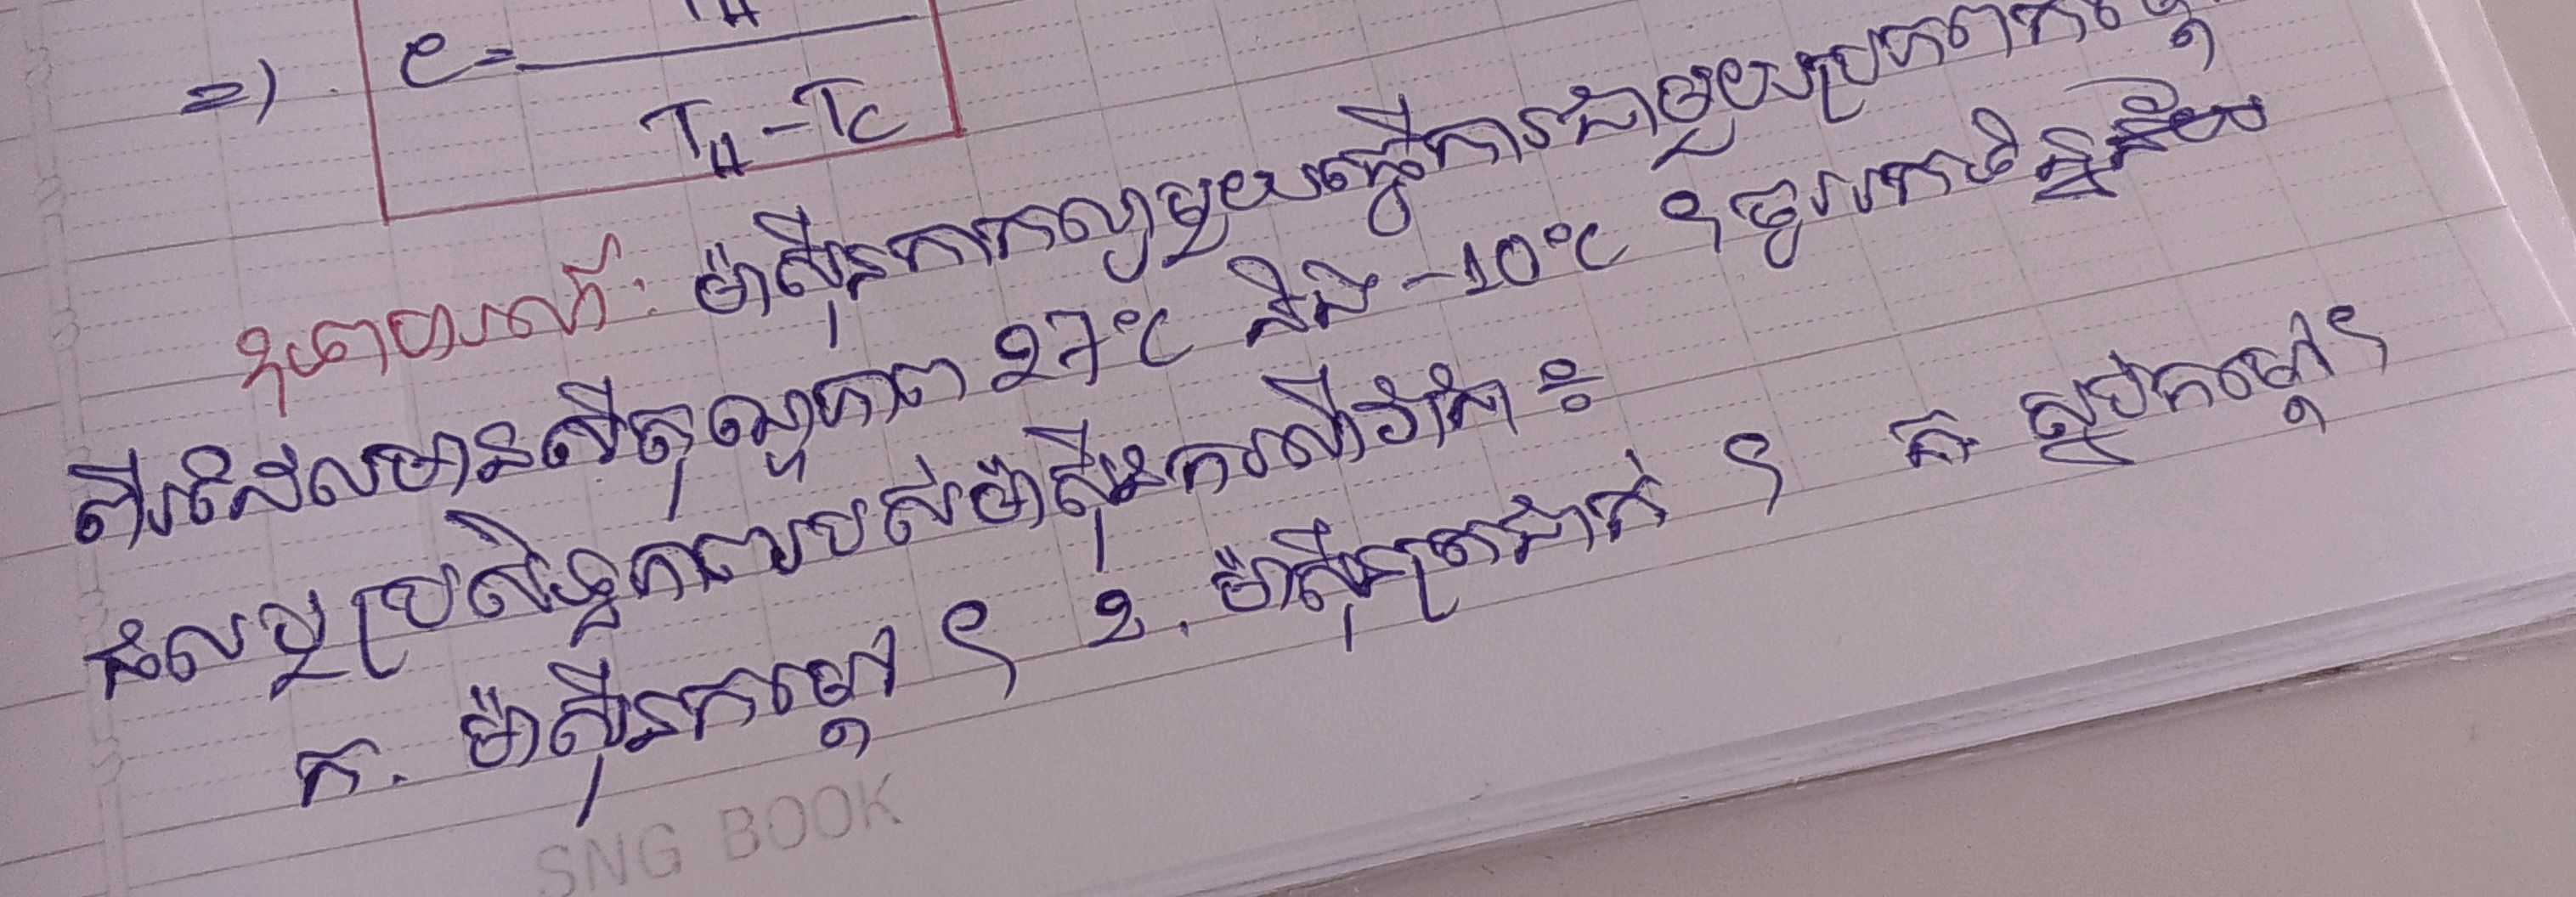 => e = T_H / (T_H - T_C)
ឧទាហរណ៍: ម៉ាស៊ីនកាកណូមួយធ្វើការជាមួយប្រភពកម្តៅ
ពីរដែលមានសីតុណ្ហភាព 27°C និង -10°C ។ ចូររក
ផលឬប្រសិទ្ធភាពរបស់ម៉ាស៊ីនករណីវាជា ៖
ក. ម៉ាស៊ីនកម្តៅ ។ ខ. ម៉ាស៊ីនត្រជាក់ ។ គ. ស្នប់កម្តៅ ។
SNG BOOK